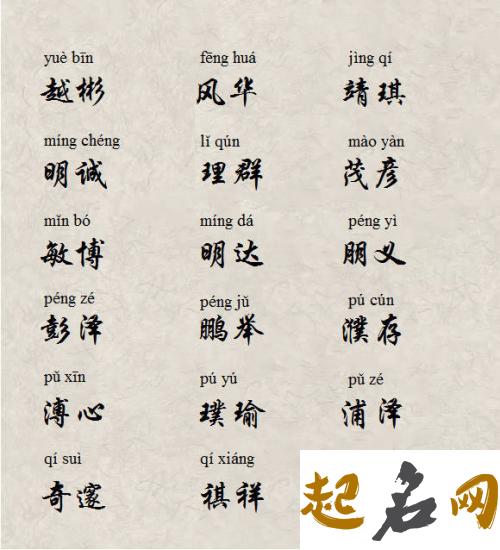 yuè bīn fēng huá jìng qí
越彬 风华 靖琪
míng chéng lǐ qún mào yàn
明诚 理群 茂彦
mǐn bó míng dá péng yì
敏博 明达 朋义
péng zé péng jǔ pú cún
彭泽 鹏举 濮存
pǔ xīn pú yú pǔ zé
溥心 璞瑜 浦泽
qí suì qí xiáng
奇邃 祺祥
起名网